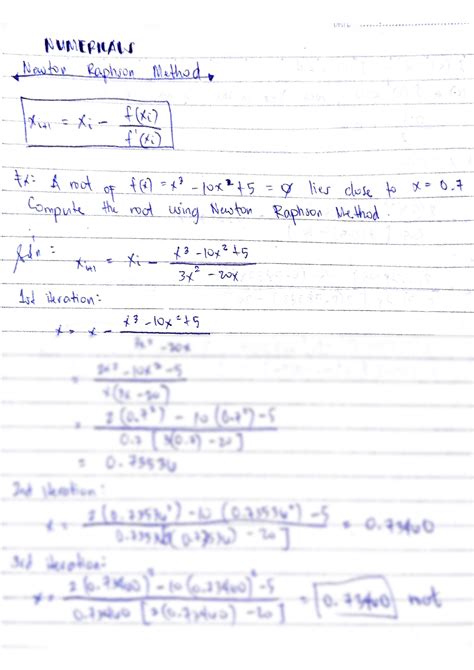 NUMERICALS
Newton Raphson Method
x_{i+1} = x_i - f(x_i) / f'(x_i)
Ex: A root of f(x) = x³ - 10x² + 5 = 0 lies close to x = 0.7
Compute the root using Newton Raphson Method.
Sol'n: x_{i+1} = x_i - (x³ - 10x² + 5) / (3x² - 20x)
1st iteration:
x = x - (x³ - 10x² + 5) / (3x² - 20x)
= (2x³ - 10x² - 5) / (x(3x - 20))
= (2(0.7³) - 10(0.7²) - 5) / (0.7[3(0.7) - 20])
= 0.73536
2nd iteration:
x = (2(0.73536³) - 10(0.73536²) - 5) / (0.73536[(0.73536) - 20]) = 0.73460
3rd iteration:
x = (2(0.73460)³ - 10(0.73460)² - 5) / (0.73460[3(0.73460) - 20]) = 0.73460